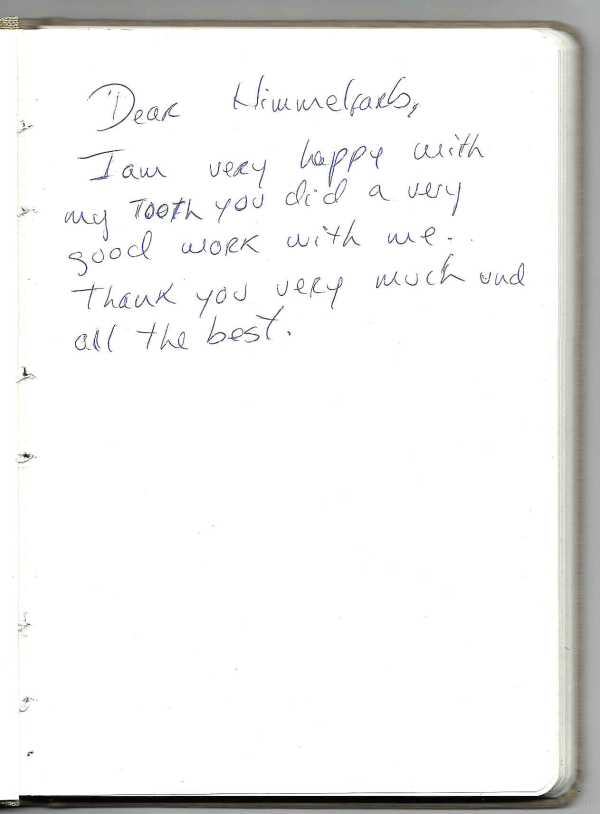 Dear Himmelfarb,
I am very happy with
my Tooth you did a very
good work with me.
Thank you very much und
all the best.